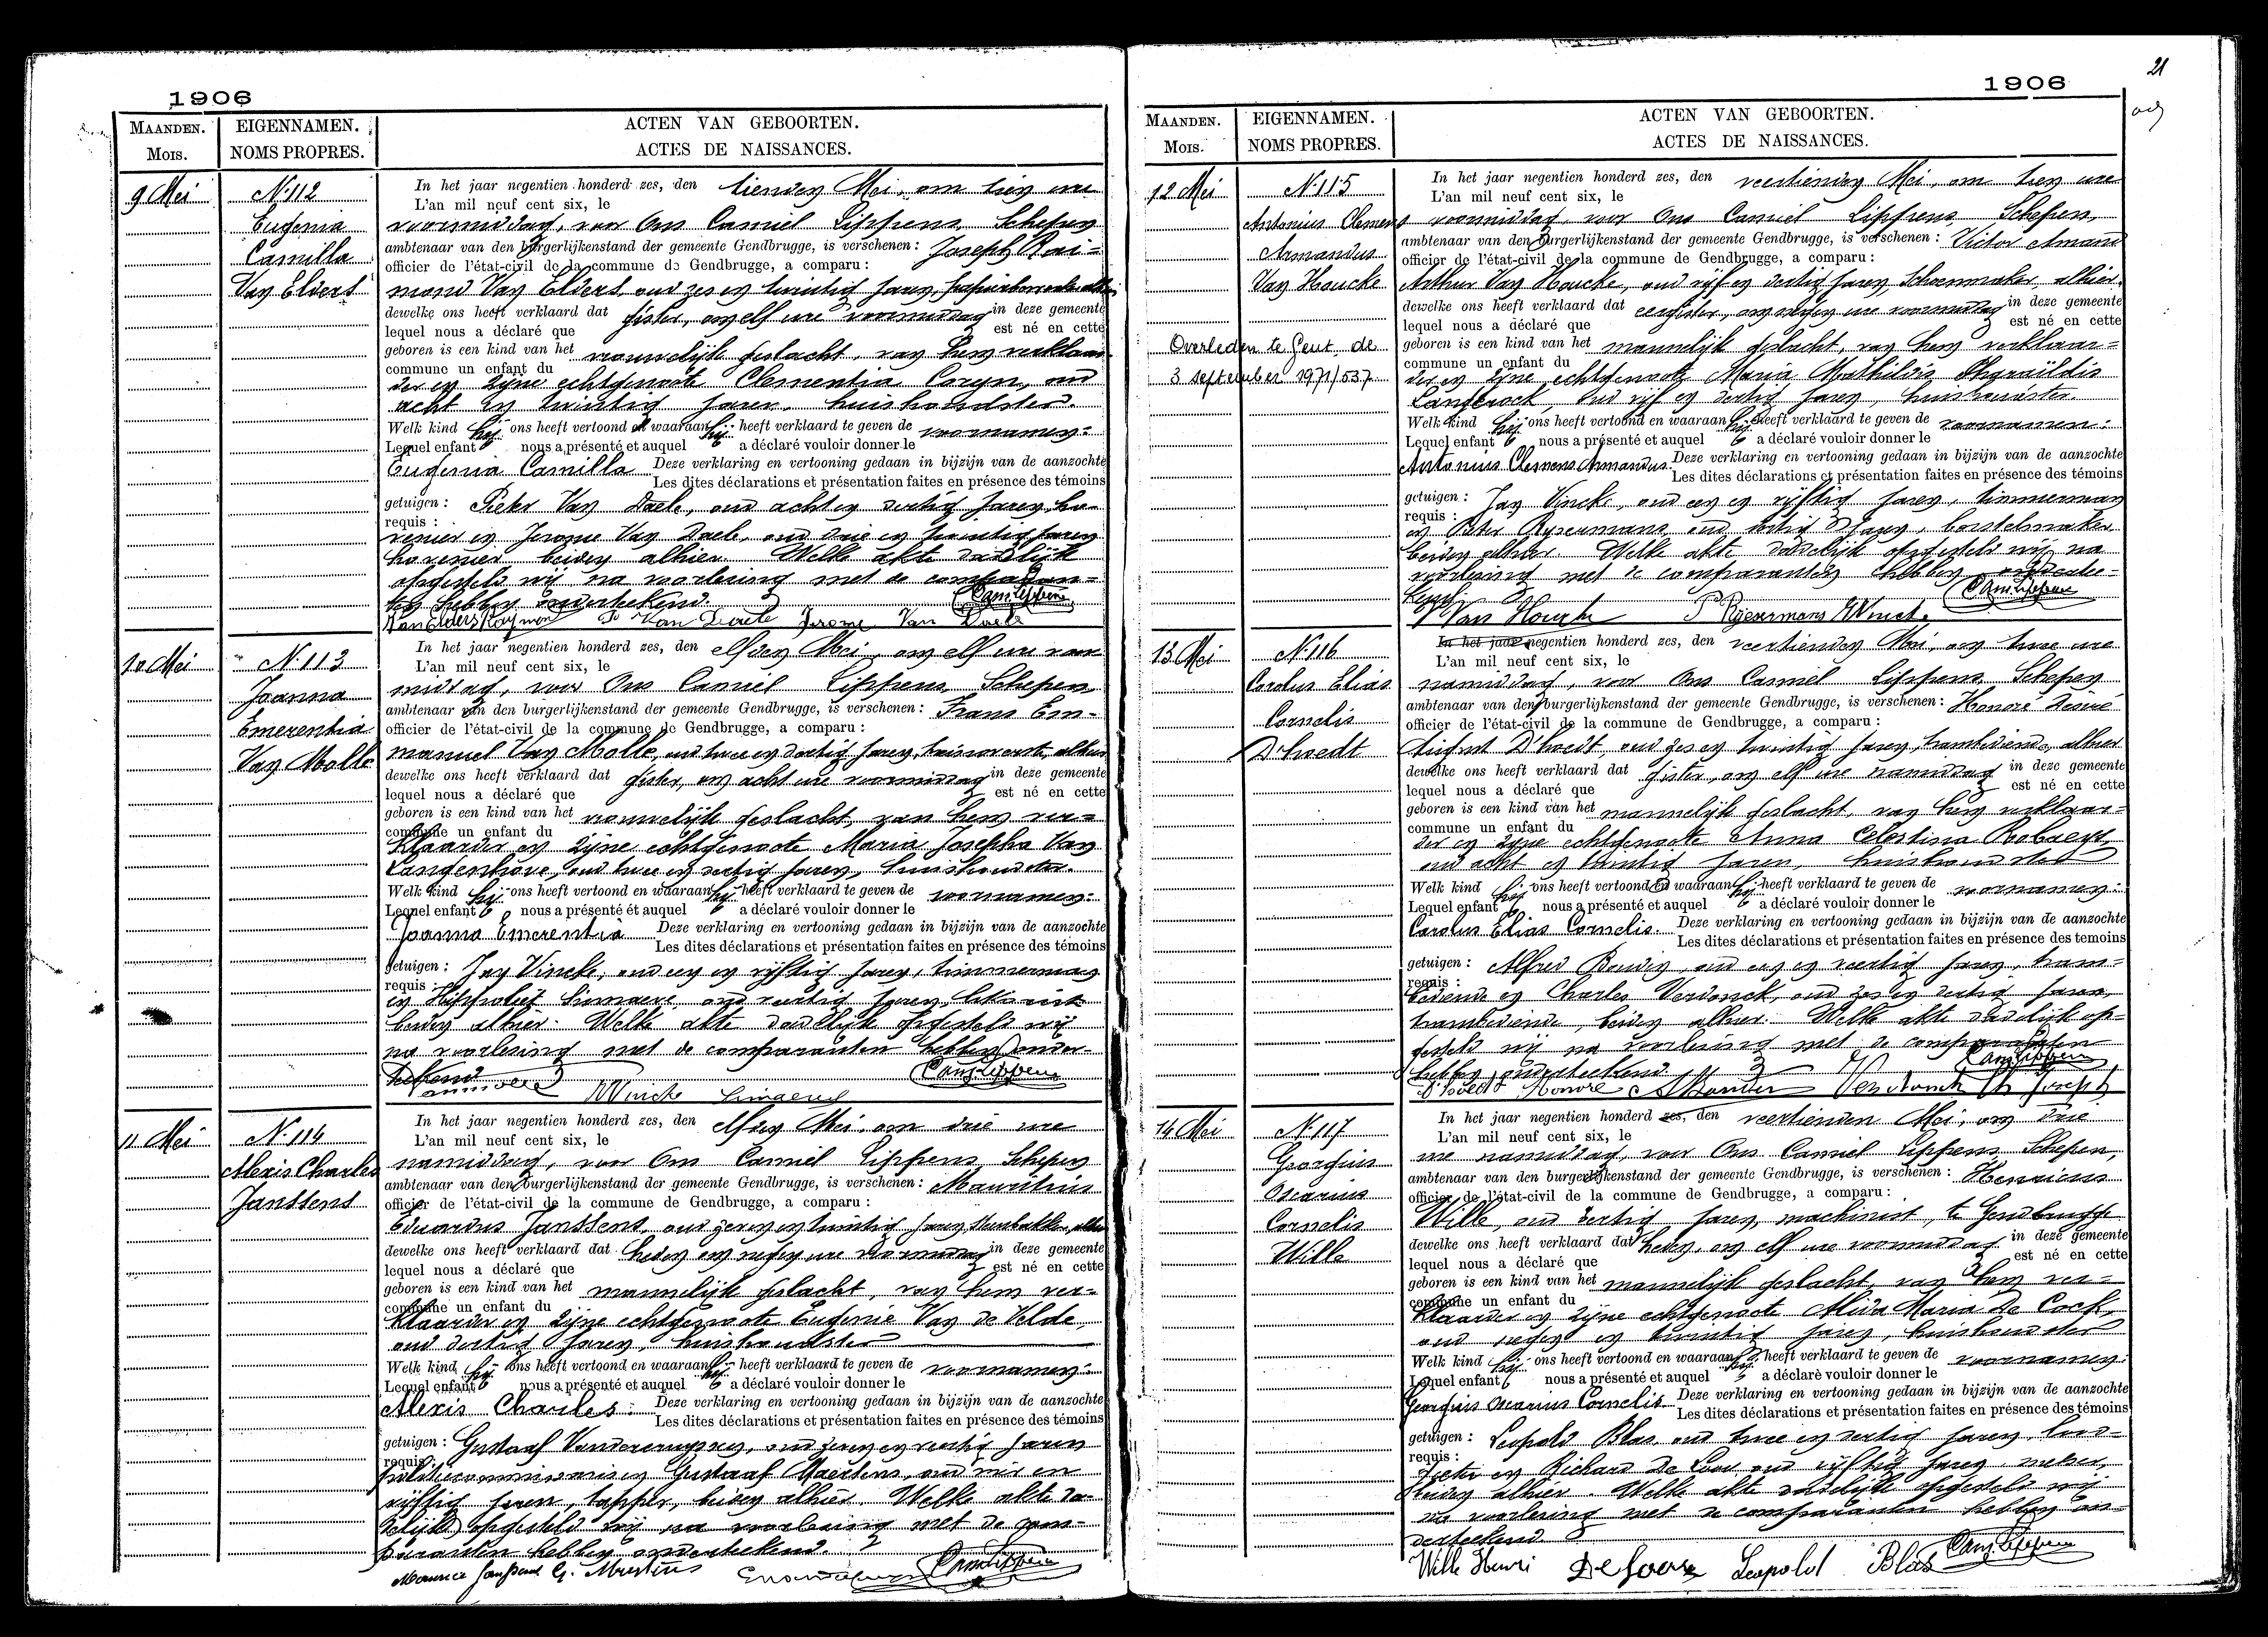 1906
MAANDEN.
Mois.
EIGENNAMEN.
NOMS PROPRES.
ACTEN VAN GEBOORTEN.
ACTES DE NAISSANCES.
9 Mei
N. 112
Eugenia
Camilla
Van Elders
In het jaar negentien honderd zes, den tienden Mei, om tien ure
L'an mil neuf cent six, le
voormiddag, voor Ons Camiel Lippens, Schepen
ambtenaar van den burgerlijkenstand der gemeente Gendbrugge, is verschenen: Joseph Rai=
officier de l'état-civil de la commune de Gendbrugge, a comparu:
mond Van Elders, oud zes en twintig jaren,
dewelke ons heeft verklaard dat gister, om elf ure voormiddag in deze gemeente
lequel nous a déclaré que est né en cette
geboren is een kind van het vrouwelijk geslacht, van hem verklaar
commune un enfant du
der en zijne echtgenoote Clementia Caryn, oud
acht en twintig jaren, huishoudster.
Welk kind hij ons heeft vertoond en waaraan hij heeft verklaard te geven de voornamen:
Lequel enfant nous a présenté et auquel a déclaré vouloir donner le
Eugenia Camilla Deze verklaring en vertooning gedaan in bijzijn van de aanzochte
Les dites déclarations et présentation faites en présence des témoins
getuigen: Pieter Van Daele, oud acht en dertig jaren, ho-
requis:
venier en Jerome Van Daele, oud drie en twintig jaren
hovenier beiden alhier. Welke akte dadelijk
opgesteld wij na voorlezing met de comparan=
ten hebben onderteekend. Cam. Lippens
Van Elders Raymond P. Van Daele Jerome Van Daele
10 Mei
N. 113
Joanna
Emerentia
Van Molle
In het jaar negentien honderd zes, den elfden Mei, om elf ure voor
L'an mil neuf cent six, le
middag, voor Ons Camiel Lippens, Schepen
ambtenaar van den burgerlijkenstand der gemeente Gendbrugge, is verschenen: Frans Em-
officier de l'état-civil de la commune de Gendbrugge, a comparu:
manuel Van Molle, oud twee en dertig jaren, alhier
dewelke ons heeft verklaard dat gister, om acht ure voormiddag in deze gemeente
lequel nous a déclaré que est né en cette
geboren is een kind van het vrouwelijk geslacht, van hem ver=
commune un enfant du
klaarder en zijne echtgenoote Maria Josepha Van
Langenhove, oud twee en dertig jaren, huishoudster.
Welk kind hij ons heeft vertoond en waaraan hij heeft verklaard te geven de voornamen:
Lequel enfant nous a présenté et auquel a déclaré vouloir donner le
Joanna Emerentia Deze verklaring en vertooning gedaan in bijzijn van de aanzochte
Les dites déclarations et présentation faites en présence des témoins
getuigen: Jan Vincke, oud een en vijftig jaren, timmerman
requis:
en Hippoliet Limaere, oud jaren,
beiden alhier. Welke akte dadelijk opgesteld wij
na voorlezing met de comparanten hebben onder-
teekend Cam. Lippens
Vincke Limaere
11 Mei
N. 114
Alexis Charles
Janssens
In het jaar negentien honderd zes, den elfden Mei, om drie ure
L'an mil neuf cent six, le
namiddag, voor Ons Camiel Lippens, Schepen
ambtenaar van den burgerlijkenstand der gemeente Gendbrugge, is verschenen: Mauritius
officier de l'état-civil de la commune de Gendbrugge, a comparu:
Eduardus Janssens, oud zeven en twintig jaren,
dewelke ons heeft verklaard dat heden om negen ure voormiddag in deze gemeente
lequel nous a déclaré que est né en cette
geboren is een kind van het mannelijk geslacht, van hem ver-
commune un enfant du
klaarder en zijne echtgenoote Eugenie Van de Velde,
oud dertig jaren, huishoudster
Welk kind hij ons heeft vertoond en waaraan hij heeft verklaard te geven de voornamen:
Lequel enfant nous a présenté et auquel a déclaré vouloir donner le
Alexis Charles. Deze verklaring en vertooning gedaan in bijzijn van de aanzochte
Les dites déclarations et présentation faites en présence des témoins
getuigen: Gustaaf oud zeven en veertig jaren
requis:
politiecommissaris en Gustaaf Maertens, oud vier en
vijftig jaren, tapper, beiden alhier. Welke akte da-
delijk opgesteld wij na voorlezing met de com-
paranten hebben onderteekend.
Maurice Janssens G. Maertens Cam. Lippens
21
1906
MAANDEN.
Mois.
EIGENNAMEN.
NOMS PROPRES.
ACTEN VAN GEBOORTEN.
ACTES DE NAISSANCES.
12 Mei
N. 115
Antonius Clemens
Armandus
Van Houcke
Overleden te Gent, de
3 september 1971/537.
In het jaar negentien honderd zes, den veertienden Mei, om tien ure
L'an mil neuf cent six, le
voormiddag, voor Ons Camiel Lippens, Schepen,
ambtenaar van den burgerlijkenstand der gemeente Gendbrugge, is verschenen: Victor Amand
officier de l'état-civil de la commune de Gendbrugge, a comparu:
Arthur Van Houcke, oud vijf en dertig jaren, Schoenmaker, alhier.
dewelke ons heeft verklaard dat eergister, om negen ure voormiddag in deze gemeente
lequel nous a déclaré que est né en cette
geboren is een kind van het mannelijk geslacht, van hem verklaar=
commune un enfant du
der en zijne echtgenoote Maria Mathildis
Langerock, oud vijf en dertig jaren, huishoudster.
Welk kind hij ons heeft vertoond en waaraan hij heeft verklaard te geven de voornamen:
Lequel enfant nous a présenté et auquel a déclaré vouloir donner le
Antonius Clemens Armandus. Deze verklaring en vertooning gedaan in bijzijn van de aanzochte
Les dites déclarations et présentation faites en présence des témoins
getuigen: Jan Vincke, oud een en vijftig jaren, timmerman
requis:
en Peter Ryseermans, oud dertig jaren, borstelmaker
beiden alhier. Welke akte dadelijk opgesteld wij na
voorlezing met de comparanten hebben onderte-
kend. Cam. Lippens
Van Houcke P. Ryseermans Vincke
13 Mei
N. 116
Carolus Elias
Cornelis
D'hoedt
In het jaar negentien honderd zes, den veertienden Mei, om twee ure
L'an mil neuf cent six, le
namiddag, voor Ons Camiel Lippens, Schepen
ambtenaar van den burgerlijkenstand der gemeente Gendbrugge, is verschenen: Honoré Désiré
officier de l'état-civil de la commune de Gendbrugge, a comparu:
August D'hoedt oud zes en twintig jaren, trambediende, alhier
dewelke ons heeft verklaard dat gister, om elf ure namiddag in deze gemeente
lequel nous a déclaré que est né en cette
geboren is een kind van het mannelijk geslacht, van hem verklaar=
commune un enfant du
der en zijne echtgenoote Anna Celestina Robaeys,
oud acht en twintig jaren, huishoudster
Welk kind hij ons heeft vertoond en waaraan hij heeft verklaard te geven de voornamen:
Lequel enfant nous a présenté et auquel a déclaré vouloir donner le
Carolus Elias Cornelis. Deze verklaring en vertooning gedaan in bijzijn van de aanzochte
Les dites déclarations et présentation faites en présence des temoins
getuigen: Alfred oud een en veertig jaren, tram=
requis:
bediende en Charles Verdonck, oud zes en dertig jaren,
trambediende, beiden alhier. Welke akte dadelijk op-
gesteld wij na voorlezing met de comparanten
hebben onderteekend. Cam. Lippens
D'hoedt Honoré Verdonck Ch Joseph
14 Mei
N. 117
Georgius
Oscarius
Cornelis
Wille
In het jaar negentien honderd zes, den veertienden Mei, om drie
L'an mil neuf cent six, le
ure namiddag, voor Ons Camiel Lippens, Schepen,
ambtenaar van den burgerlijkenstand der gemeente Gendbrugge, is verschenen: Henricus
officier de l'état-civil de la commune de Gendbrugge, a comparu:
Wille, oud dertig jaren, machinist, te Gendbrugge
dewelke ons heeft verklaard dat heden, om elf ure voormiddag in deze gemeente
lequel nous a déclaré que est né en cette
geboren is een kind van het mannelijk geslacht, van hem ver=
commune un enfant du
klaarder en zijne echtgenoote Alida Maria De Cock,
oud negen en twintig jaren, huishoudster
Welk kind hij ons heeft vertoond en waaraan hij heeft verklaard te geven de voornamen:
Lequel enfant nous a présenté et auquel a déclarè vouloir donner le
Georgius Oscarius Cornelis. Deze verklaring en vertooning gedaan in bijzijn van de aanzochte
Les dites déclarations et présentation faites en présence des témoins
getuigen: Leopold Blas, oud twee en dertig jaren, lood-
requis:
gieter en Richard oud vijftig jaren, weber,
beiden alhier. Welke akte dadelijk opgesteld wij
na voorlezing met de comparanten hebben on-
derteekend.
Wille Henri Leopold Blas Cam. Lippens